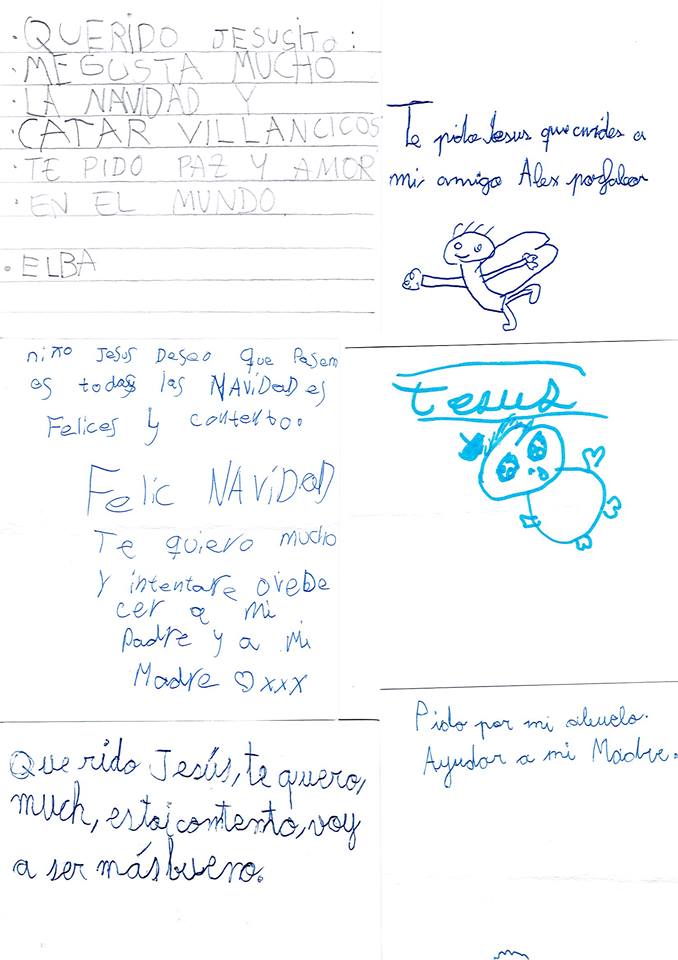 · QUERIDO JESUSITO:
· ME GUSTA MUCHO
· LA NAVIDAD Y
· CATAR VILLANCICOS
· TE PIDO PAZ Y AMOR
· EN EL MUNDO
· ELBA
Te pido Jesus que cuides a
mi amigo Alex porfabor
niño Jesus Deseo que Pasem
os todas las NAViDaD es
Felices y contento.
Felic NAViDaD
Te quiero mucho
Y intentare ovebe
cer a mi
padre y a mi
Madre ♡xxx
Jesus
Querido Jesús, te quero,
much, estoi contento, voy
a ser más bueno.
Pido por mi abuelo.
Ayudar a mi Madre.